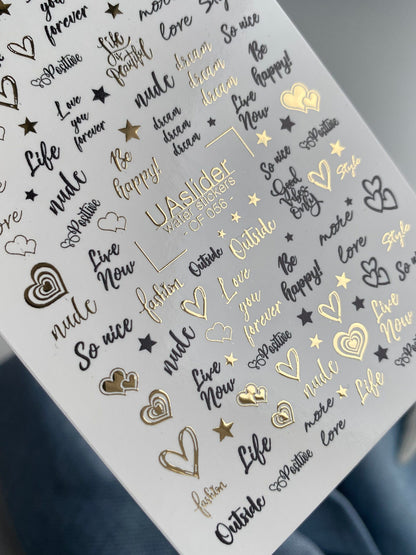 you
forever
more
love
So nice
Positive
Life
is
Beautiful
dream
dream
dream
Be
happy!
Love
you
forever
nude
dream
dream
dream
Live
Now
Positive
Life
Be
happy!
UAslider
water stickers
CF 056
So nice
Good
Vibes
Only
Style
nude
Positive
love
Live
Now
Outside
Outside
more
love
Style
fashion
Love
you
forever
Be
happy!
nude
So nice
nude
Live
Now
Positive
nude
Live
Now
Life
Life
more
love
Positive
fashion
Outside